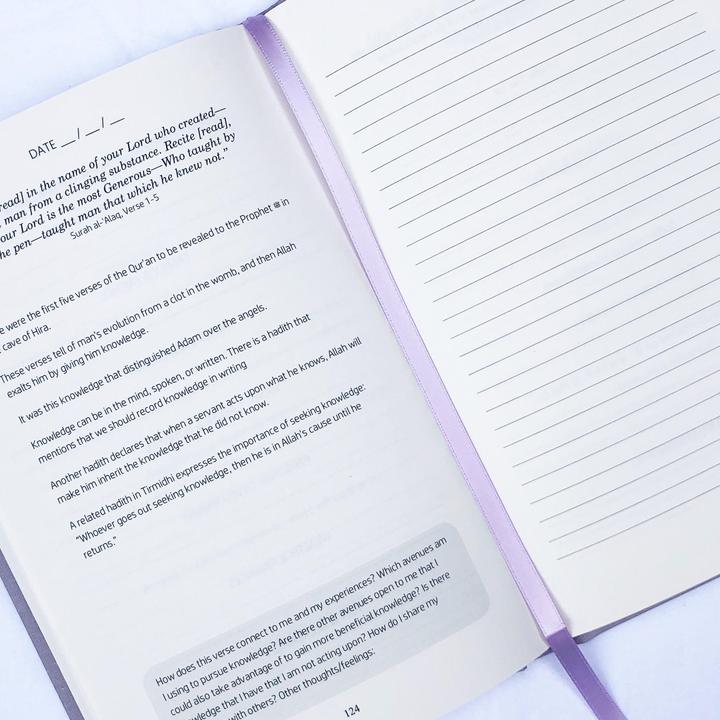 DATE __ / __ / __
read] in the name of your Lord who created—
man from a clinging substance. Recite [read],
our Lord is the most Generous—Who taught by
he pen—taught man that which he knew not.”
Surah al-‘Alaq, Verse 1-5
e were the first five verses of the Qur’an to be revealed to the Prophet ﷺ in
cave of Hira.
These verses tell of man’s evolution from a clot in the womb, and then Allah
exalts him by giving him knowledge.
It was this knowledge that distinguished Adam over the angels.
Knowledge can be in the mind, spoken, or written. There is a hadith that
mentions that we should record knowledge in writing
Another hadith declares that when a servant acts upon what he knows, Allah will
make him inherit the knowledge that he did not know.
A related hadith in Tirmidhi expresses the importance of seeking knowledge:
“Whoever goes out seeking knowledge, then he is in Allah’s cause until he
returns.”
How does this verse connect to me and my experiences? Which avenues am
I using to pursue knowledge? Are there other avenues open to me that I
could also take advantage of to gain more beneficial knowledge? Is there
owledge that I have that I am not acting upon? How do I share my
with others? Other thoughts/feelings:
124